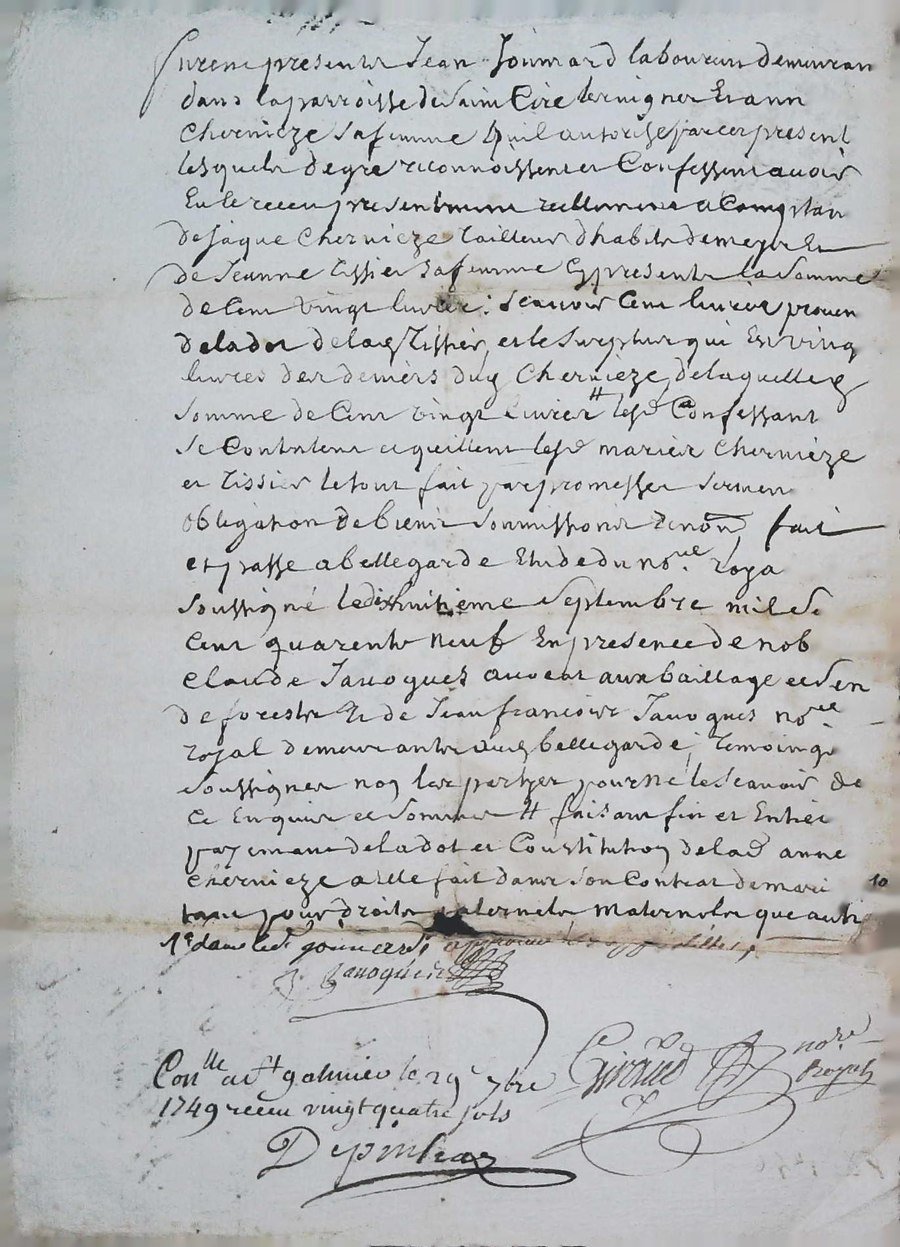 Furent presents Jean Joinnard laboureur demeuran
dans la parroisse de Saint Cire les vignes Et ann
Chernieze sa femme quil autorise par ces present
lesquels de gre reconnoissent et Confessent avoir
Eu le receu presentement reellement a Comptan
de Jaque Chernieze tailleur dhabits de meyr Et
de Jeanne tissier sa femme cy presents la Somme
de Cent vingt livres: Scavoir Cent livres proven
de la dot de lad tissier et le Surplus qui Est vinq
livres des deniers dud Chernieze, de laquelle
Somme de Cent vingt livres tt lesd Confessant
Se Contentent et quittent lesd mariés Chernieze
et Tissier le tout fait par promesses serment
obligation de biens Soumissions Renon, fait
et passé a bellegarde Etude du nore roya
Soussigné le dixhuitieme Septembre mil Se
Cent quarente neuf En presence de nob
Claude Javogues avocat aux baillage et Sen
de forests Et de Jean francois Javogues nore
royal demeurants aud bellegarde, temoings
Soussignes non les parties pour ne le Scavoir de
Ce Enquis et Sommes tt faisant fin et Entier
payement de la dot et Constitution de lad anne
Chernieze a elle fait dans Son Contrat de mari
tant pour droits paternels maternels que
dans led
Javogues
Conlle a st galmier le 29e 7bre
1749 receu vingt quatre sols
Giraud nore
Royal